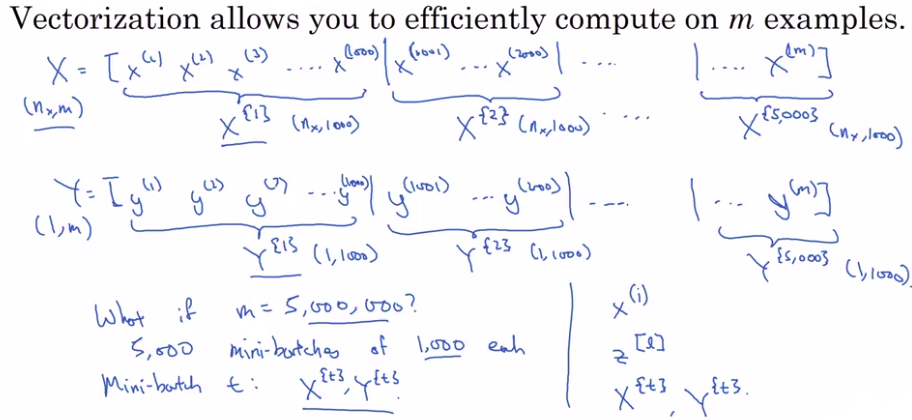 Vectorization allows you to efficiently compute on m examples.
X = [x^(1) x^(2) x^(3) .... x^(1000) | x^(1001) ... x^(2000) | .... | .... x^(m)]
(n_x, m) X^{1} (n_x, 1000) X^{2} (n_x, 1000) .... X^{5,000} (n_x, 1000)
Y = [y^(1) y^(2) y^(3) ... y^(1000) | y^(1001) ... y^(2000) | .... | ... y^(m)]
(1, m) Y^{1} (1, 1000) Y^{2} (1, 1000) Y^{5,000} (1, 1000)
What if m = 5,000,000?
5,000 mini-batches of 1,000 each
Mini-batch t: X^{t}, Y^{t}.
x^(i)
z^[l]
X^{t}, Y^{t}.